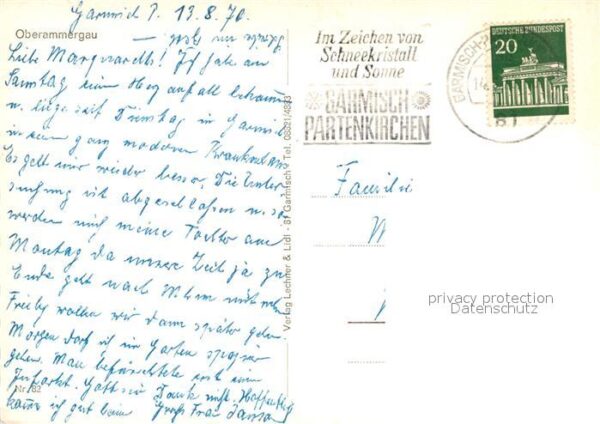 Garmisch P. 13.8.70.
Oberammergau
Liebe Marquardts! Ich habe am
Samstag ein Herzanfall bekommen
u. liege seit Dienstag in Garmisch
in ein ganz modernen Krankenhaus
Es geht mir wieder besser. Die Unter
suchung ist abgeschlossen u. so
werden mich meine Tochter am
Montag da unsere Zeit ja zu
Ende geht nach
wollen wir dann später gehen
Morgen darf ich im Garten spazier
gehen. Man befürchtete erst ein
Infarkt. Gott sei Dank nicht. Hoffentlich
kann ich gut Gruß Frau
Nr. 82
Verlag Lechner & Lidl · 81 Garmisch · Tel. 08821/4893
Im Zeichen von
Schneekristall
und Sonne
GARMISCH
PARTENKIRCHEN
GARMISCH-P
81
DEUTSCHE BUNDESPOST
20
Familie
privacy protection
Datenschutz